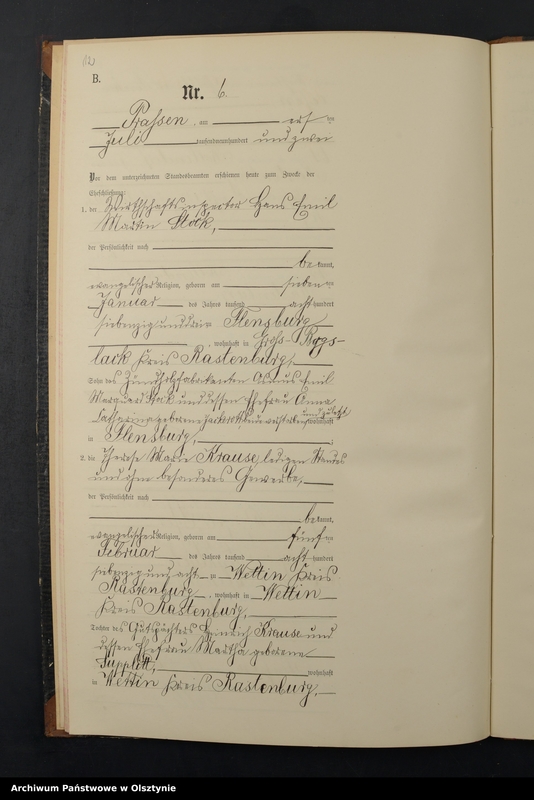 B.
Nr. 6.
Prassen, am elf ten
Juli tausendneunhundert und zwei
Vor dem unterzeichneten Standesbeamten erschienen heute zum Zwecke der
Eheschließung:
1. der Wirthschaftsinspector Hans Emil
Martin Stock,
der Persönlichkeit nach
be kannt,
evangelischer Religion, geboren am sieben ten
Januar des Jahres tausend acht hundert
siebenzig und drei in Flensburg
, wohnhaft in Gross-
lack Kreis Rastenburg,
Sohn des Zündholzfabrikanten Emil
Stock und dessen Ehefrau Anna
geborene
und zuletzt wohnhaft
in Flensburg,
2. die Therese Marie Krause, ledigen Standes
und ohne besonderes Gewerbe,
der Persönlichkeit nach
be kannt,
evangelischer Religion, geboren am fünf ten
Februar des Jahres tausend acht hundert
siebenzig und acht zu Wettin Kreis
Rastenburg, wohnhaft in Wettin
Kreis Rastenburg,
Tochter des Gutspächters Heinrich Krause und
dessen Ehefrau Martha geborene
Supplitt,
wohnhaft
in Wettin Kreis Rastenburg,
Archiwum Państwowe w Olsztynie